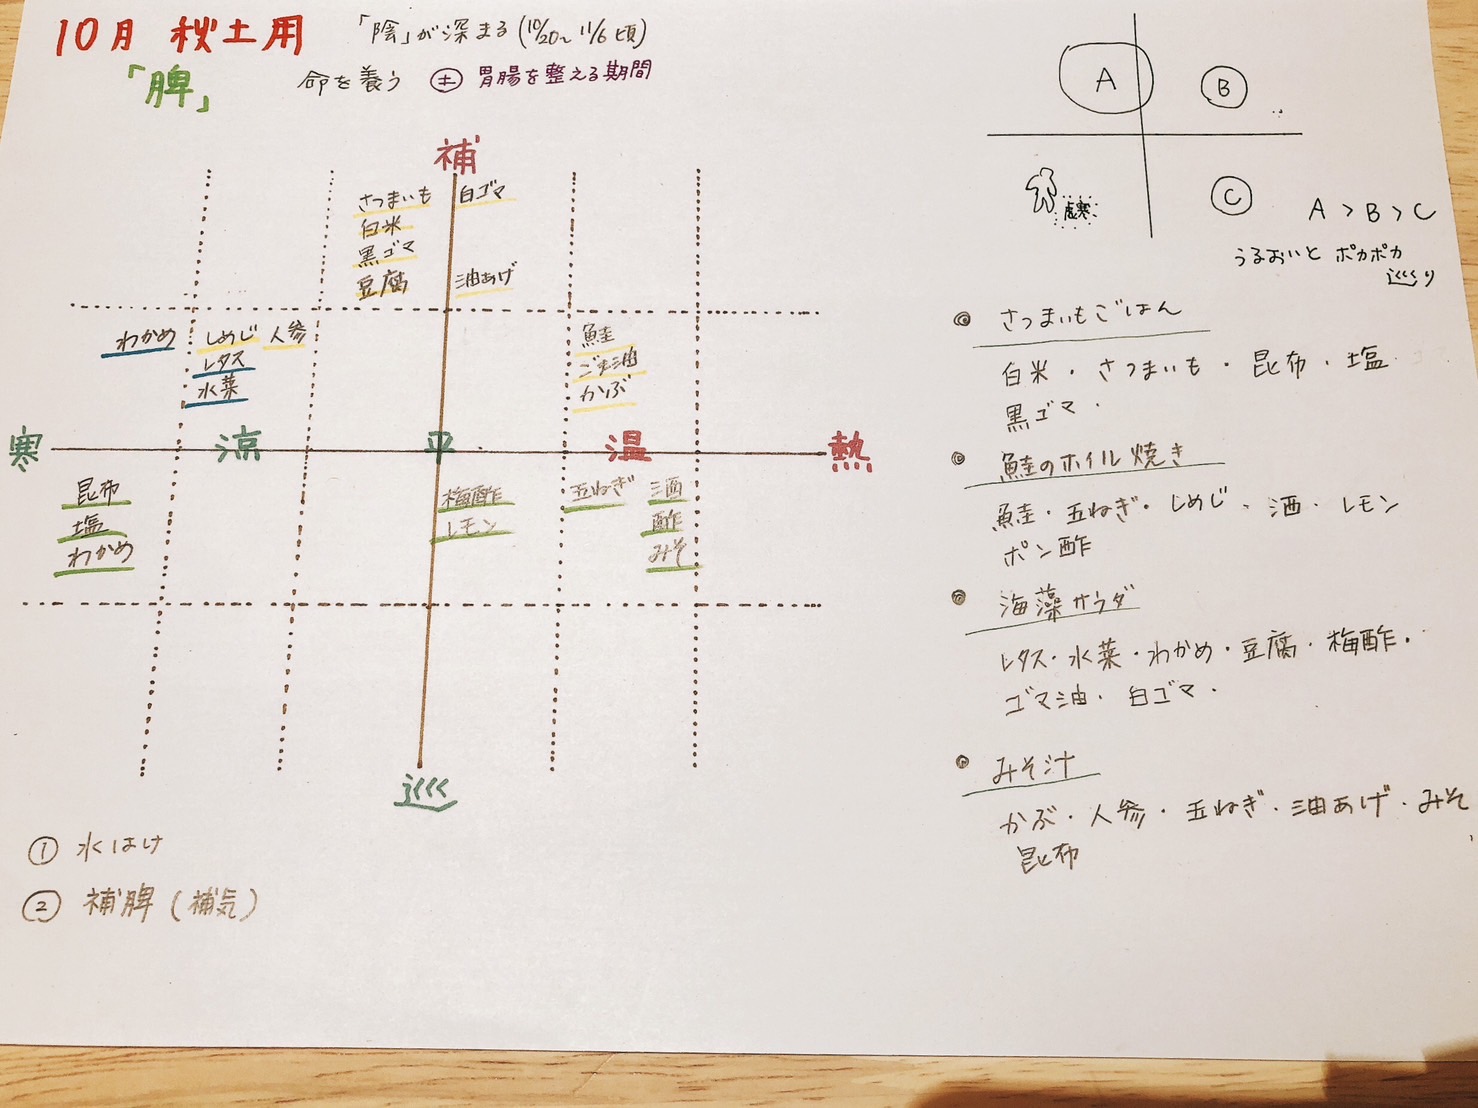 10月 秋土用 「陰」が深まる(10/20~11/6頃)
「脾」 命を養う ㊏ 胃腸を整える期間
補
さつまいも 白ゴマ
白米
黒ゴマ
豆腐 油あげ
わかめ しめじ 人参 鮭
レタス ごま油
水菜 かぶ
寒 涼 平 温 熱
昆布 梅酢 玉ねぎ 酒
塩 レモン 酢
わかめ みそ
巡
① 水はけ
② 補脾(補気)
A B
虚寒 C
A > B > C
うるおいと ポカポカ
巡り
◎ さつまいもごはん
白米・さつまいも・昆布・塩
黒ゴマ・
◎ 鮭のホイル焼き
鮭・玉ねぎ・しめじ・酒・レモン
ポン酢
◎ 海藻サラダ
レタス・水菜・わかめ・豆腐・梅酢・
ゴマ油・白ゴマ・
◎ みそ汁
かぶ・人参・玉ねぎ・油あげ・みそ
昆布